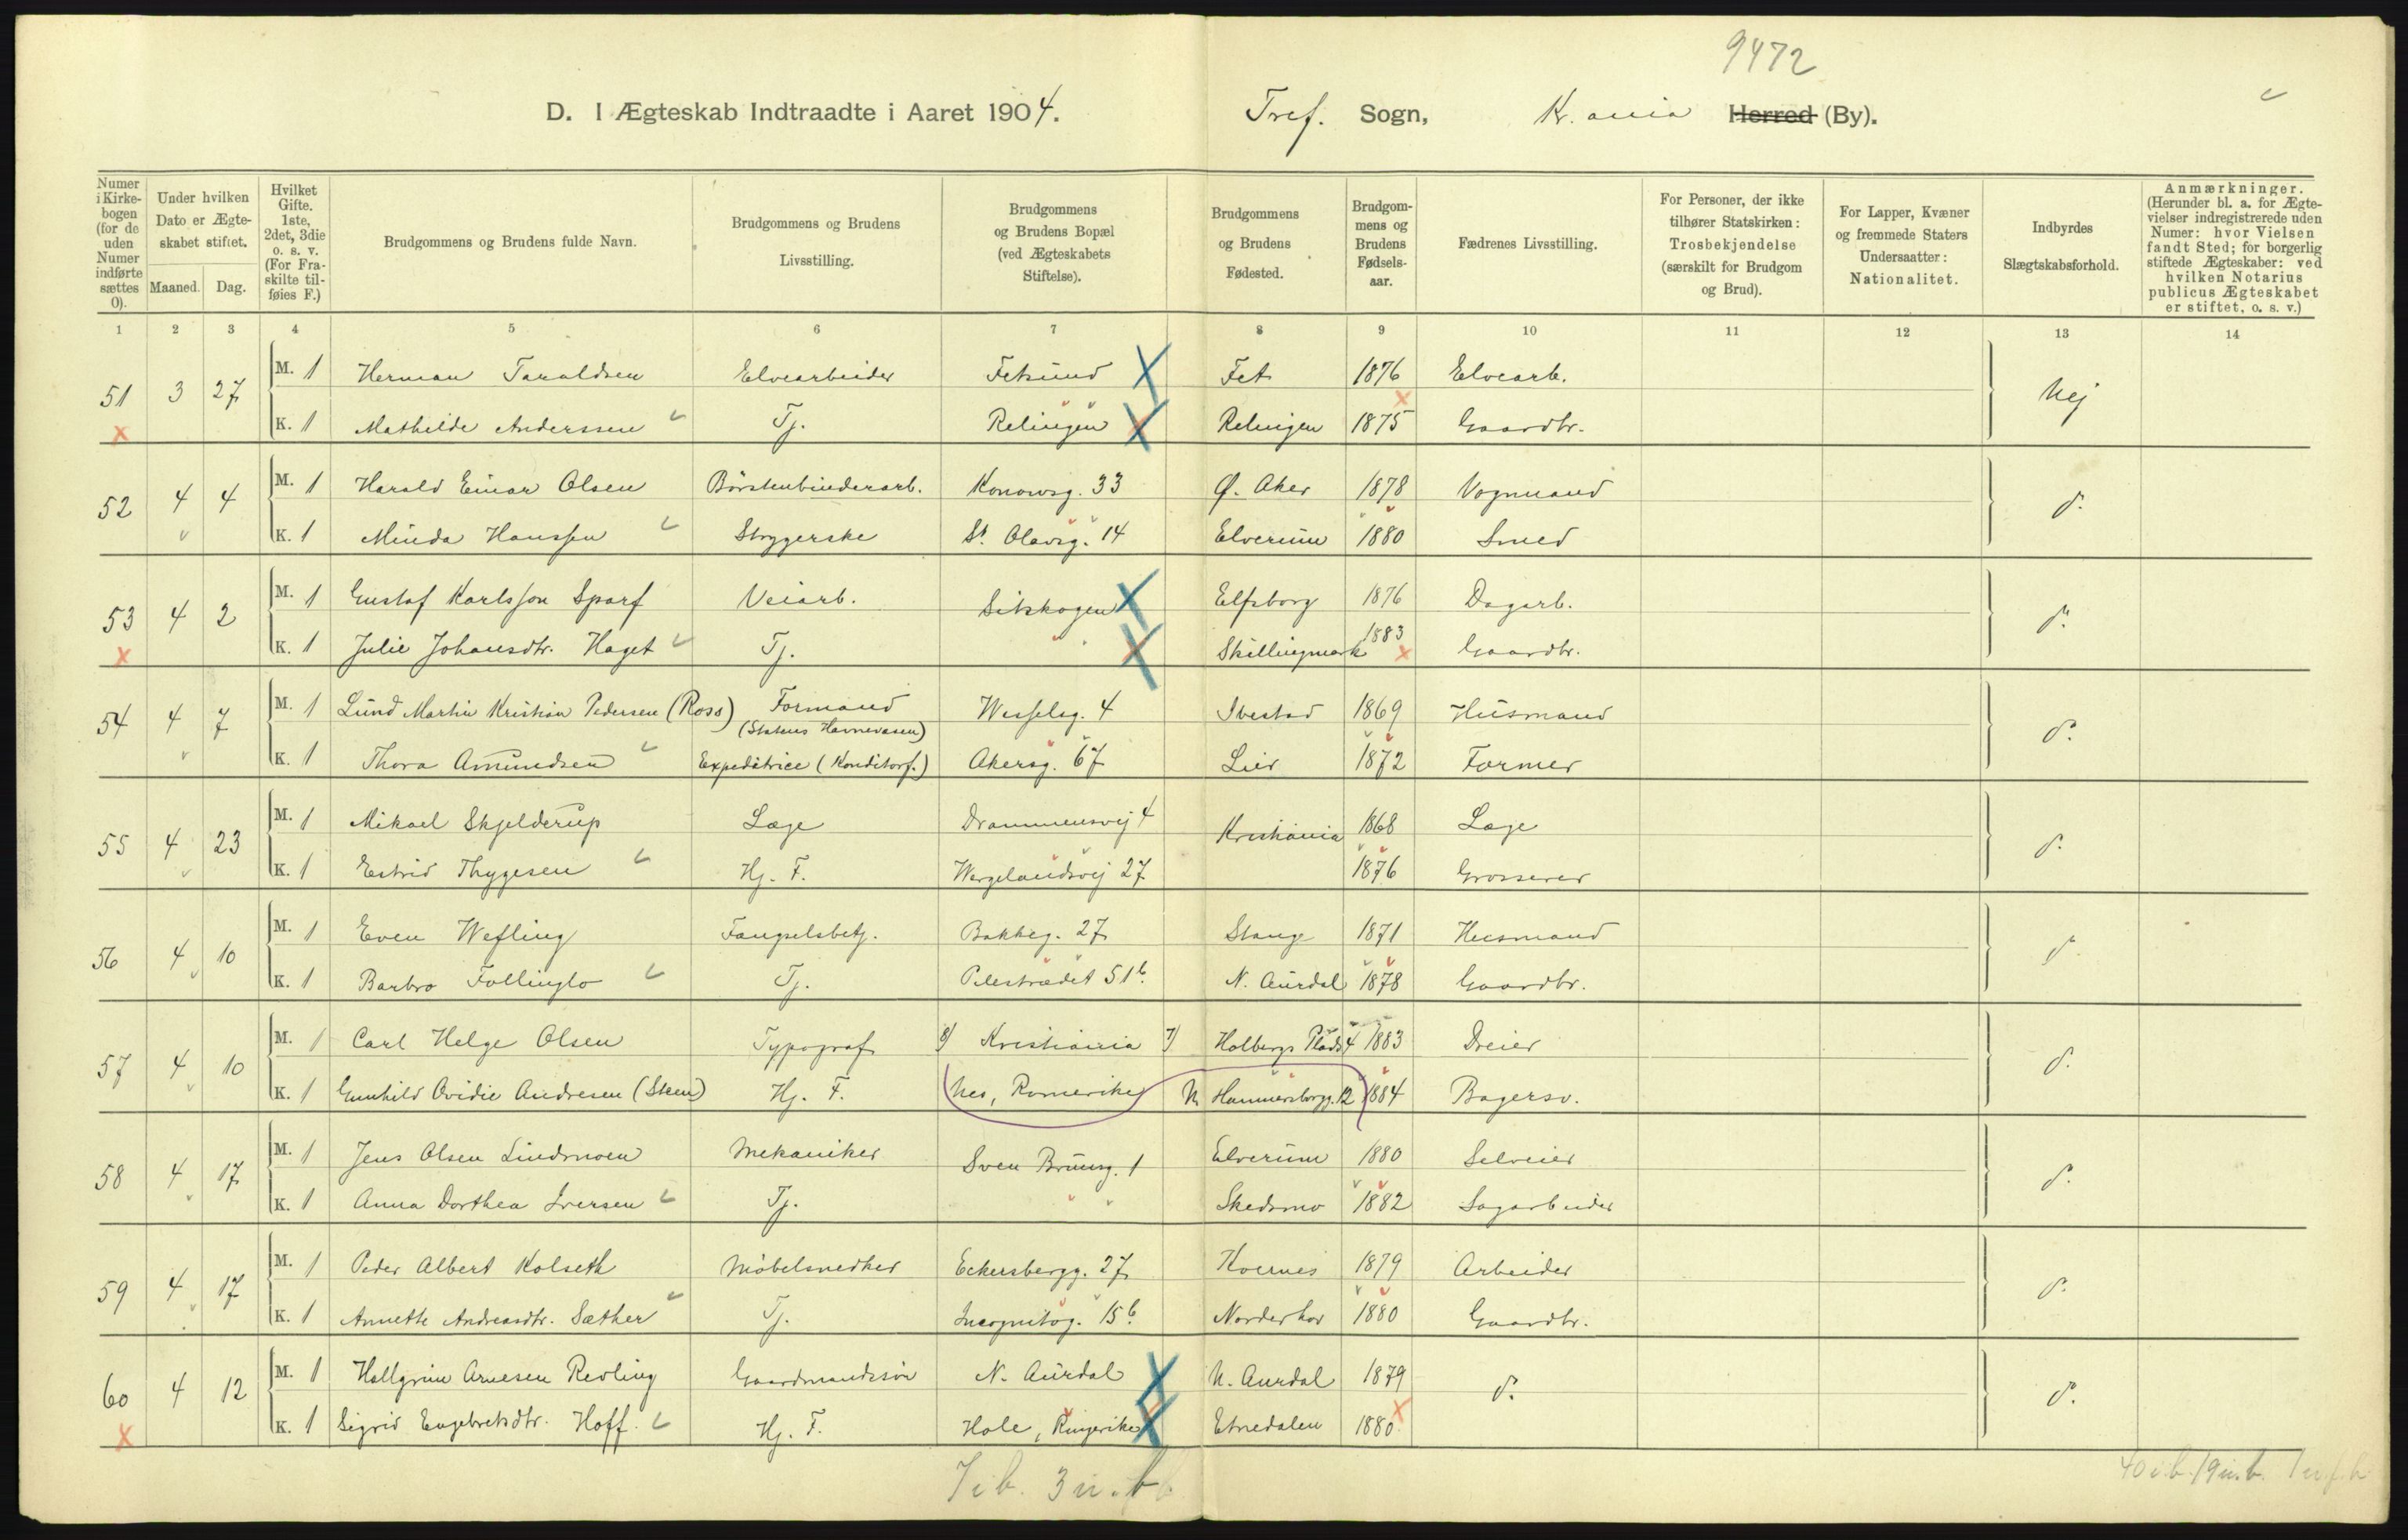 9472
D. I Ægteskab Indtraadte i Aaret 1904. Tref. Sogn, Kr.ania Herred (By).
Numer i Kirkebogen (for de uden Numer indførte sættes 0).
Under hvilken Dato er Ægteskabet stiftet.
Maaned. Dag.
Hvilket Gifte. 1ste, 2det, 3die o. s. v. (For Fraskilte tilføies F.)
Brudgommens og Brudens fulde Navn.
Brudgommens og Brudens Livsstilling.
Brudgommens og Brudens Bopæl (ved Ægteskabets Stiftelse).
Brudgommens og Brudens Fødested.
Brudgommens og Brudens Fødselsaar.
Fædrenes Livsstilling.
For Personer, der ikke tilhører Statskirken: Trosbekjendelse (særskilt for Brudgom og Brud).
For Lapper, Kvæner og fremmede Staters Undersaatter: Nationalitet.
Indbyrdes Slægtskabsforhold.
Anmærkninger. (Herunder bl. a. for Ægtevielser indregistrerede uden Numer: hvor Vielsen fandt Sted; for borgerlig stiftede Ægteskaber: ved hvilken Notarius publicus Ægteskabet er stiftet, o. s. v.)
1 2 3 4 5 6 7 8 9 10 11 12 13 14
51 3 27 M. 1 Herman Taraldsen Elvearbeider Fetsund Fet 1876 Elvearb. Nej
K. 1 Mathilde Anderssen Tj. Relingen Relingen 1875 Gaardbr.
52 4 4 M. 1 Harald Einar Olsen Börstenbinderarb. Konowsg. 33 Ø. Aker 1878 Vognmand d.
K. 1 Minda Hanssen Strygerske St. Olavsg. 14 Elverum 1880 Smed
53 4 2 M. 1 Gustaf Karlsson Sparf Veiarb. Sitskogen Elfsborg 1876 Dagarb. d.
K. 1 Julie Johansdtr. Haget Tj. " Skillingmark 1883 Gaardbr.
54 4 7 M. 1 Lund Martin Kristian Pedersen (Ross) Formand (Statens Havnevæsen) Wesselsg. 4 Ibestad 1869 Husmand d.
K. 1 Thora Amundsen Expeditrice (Konditorf.) Akersg. 67 Lier 1872 Former
55 4 23 M. 1 Mikael Skjelderup Læge Drammensvej 4 Kristiania 1868 Læge d.
K. 1 Estrid Thygesen Hj. F. Wergelandsvej 27 1876 Grosserer
56 4 10 M. 1 Even Wefling Fængselsbetj. Bakkeg. 27 Stange 1871 Husmand d.
K. 1 Barbro Follinglo Tj. Pilestrædet 51b. N. Aurdal 1878 Gaardbr.
57 4 10 M. 1 Carl Helge Olsen Typograf 8) Kristiania 7) Holbergs Plads 4 1883 Dreier d.
K. 1 Gunhild Ovidie Andresen (Steen) Hj. F. Nes, Romerike N. Hammersborgg. 12 1884 Bagersv.
58 4 17 M. 1 Jens Olsen Lindmoen Mekaniker Sven Brunsg. 1 Elverum 1880 Selveier d.
K. 1 Anna Dorthea Iversen Tj. " " Skedsmo 1882 Sagarbeider
59 4 17 M. 1 Peder Albert Kolseth Möbelsnedker Eckersbergg. 27 Kvernes 1879 Arbeider d.
K. 1 Annette Andreasdtr. Sæther Tj. Incognitog. 15b. Norderhov 1880 Gaardbr.
60 4 12 M. 1 Hallgrim Arnesen Revling Gaardmandssön N. Aurdal N. Aurdal 1879 d. d.
K. 1 Sigrid Engebretsdtr. Hoff. Hj. F. Hole, Ringerike Etnedalen 1880
7 i b. 3 u. b.